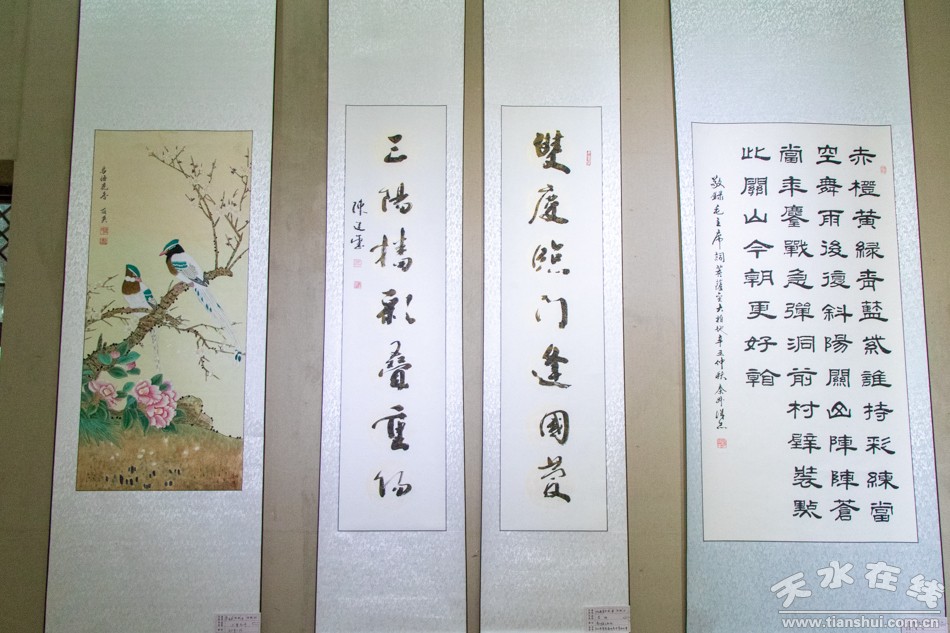 赤橙黄緑青藍紫誰持彩練當
空舞雨後復斜陽關山陣陣蒼
當年鏖戰急彈洞前村壁裝點
此關山今朝更好看
敬録毛主席詞菩薩蛮大柏地辛丑仲秋秦州
雙慶臨门逢國慶
三陽播彩疊重陽
天水在线
www.tianshui.com.cn